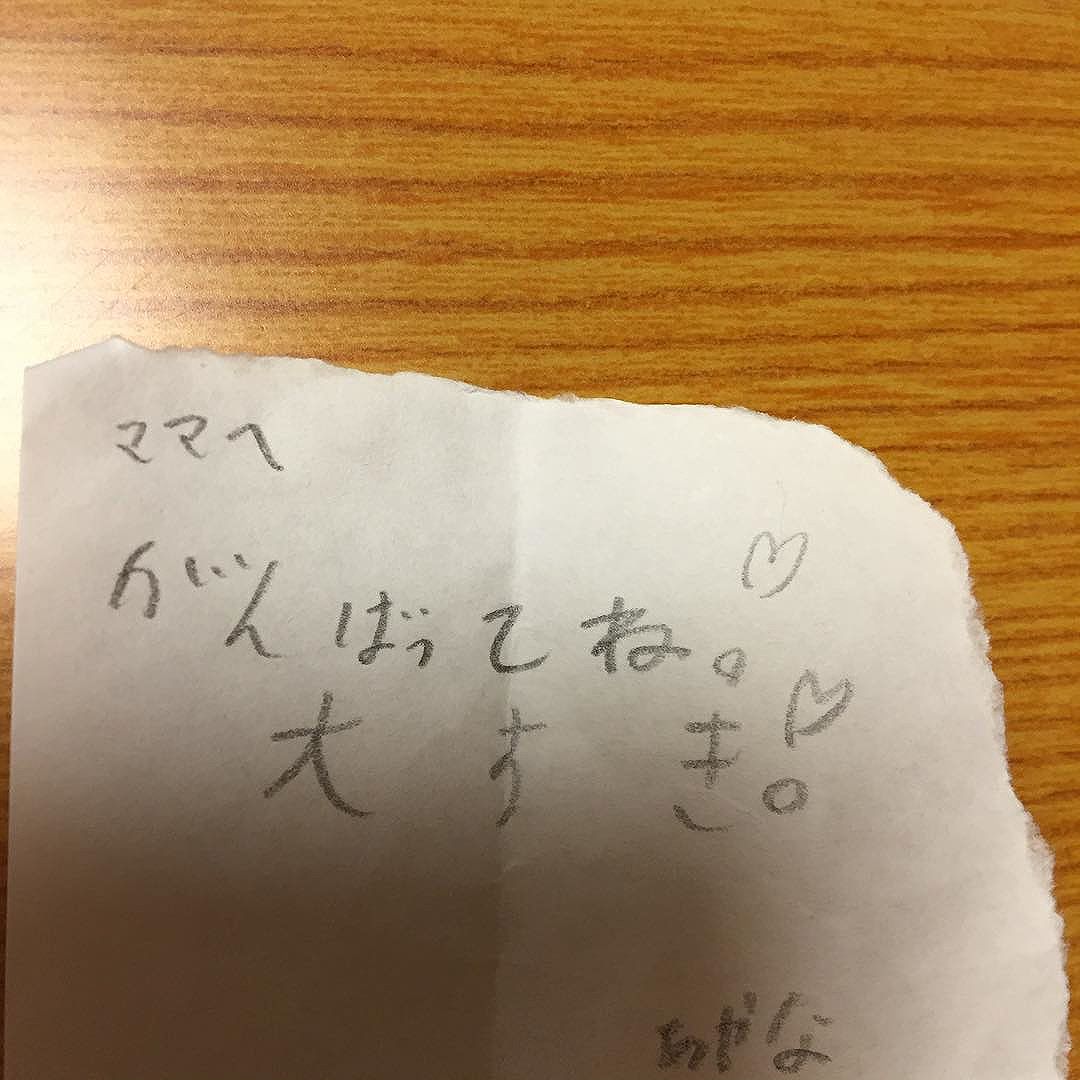 ママへ
がんばってね。♡
大すき。♡
あやな